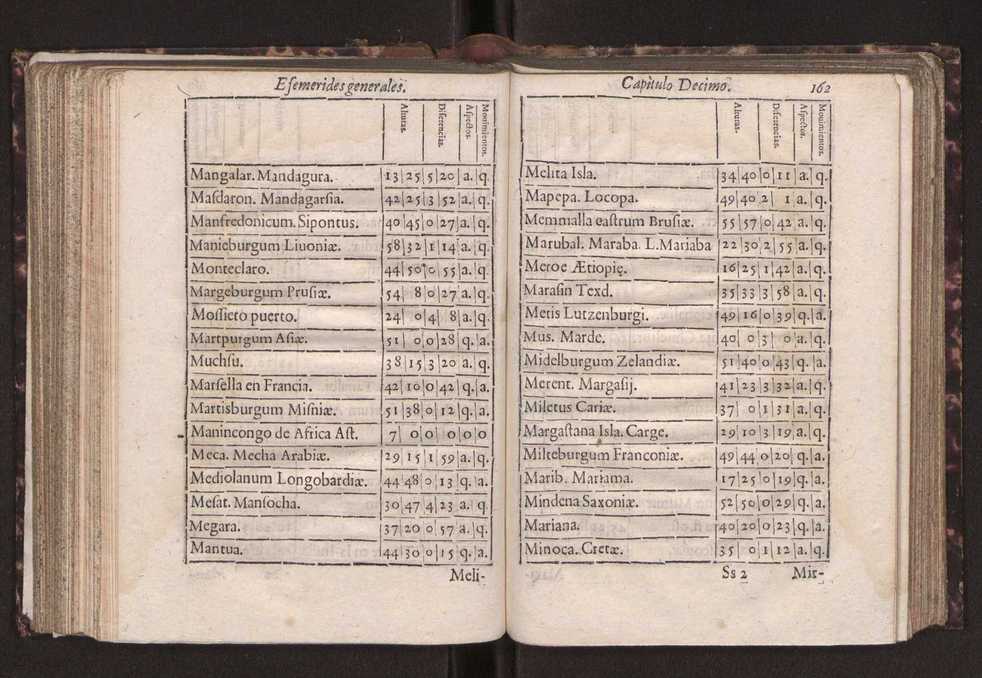 Esemerides generales.
Alturas. Diferencias. Aspectos. Mouimientos.
Mangalar. Mandagura. 13 25 5 20 a. q.
Masdaron. Mandagarsia. 42 25 3 52 a. q.
Manfredonicum. Sipontus. 40 45 0 27 a. q.
Manieburgum Liuoniæ. 58 32 1 14 a. q.
Monteclaro. 44 50 0 55 a. q.
Margeburgum Prusiæ. 54 8 0 27 a. q.
Mossieto puerto. 24 0 4 8 a. q.
Martpurgum Asiæ. 51 0 0 28 q. a.
Muchsu. 38 15 3 20 a. q.
Marsella en Francia. 42 10 0 42 q. a.
Martisburgum Misniæ. 51 38 0 12 q. a.
Manincongo de Africa Ast. 7 0 0 0 0 0
Meca. Mecha Arabiæ. 29 15 1 59 a. q.
Mediolanum Longobardiæ. 44 48 0 13 q. a.
Mesat. Mansocha. 30 47 4 23 a. q.
Megara. 37 20 0 57 a. q.
Mantua. 44 30 0 15 q. a.
Meli-
Capitulo Decimo. 162
Alturas. Diferencias. Aspectos. Mouimientos.
Melita Isla. 34 40 0 11 a. q.
Mapepa. Locopa. 49 40 2 1 a. q.
Memmalla eastrum Brusiæ. 55 57 0 42 a. q.
Marubal. Maraba. L. Mariaba 22 30 2 55 a. q.
Meroe Ætiopię. 16 25 1 42 a. q.
Marasin Texd. 35 33 3 58 a. q.
Metis Lutzenburgi. 49 16 0 39 q. a.
Mus. Marde. 40 0 3 0 a. q.
Midelburgum Zelandiæ. 51 40 0 43 q. a.
Merent. Margasij. 41 23 3 32 a. q.
Miletus Cariæ. 37 0 1 31 a. q.
Margastana Isla. Carge. 29 10 3 19 a. q.
Milteburgum Franconiæ. 49 44 0 20 q. a.
Marib. Mariama. 17 25 0 19 q. a.
Mindena Saxoniæ. 52 50 0 29 q. a.
Mariana. 40 20 0 23 q. a.
Minoca. Cretæ. 35 0 1 12 a. q.
Ss 2 Mir-